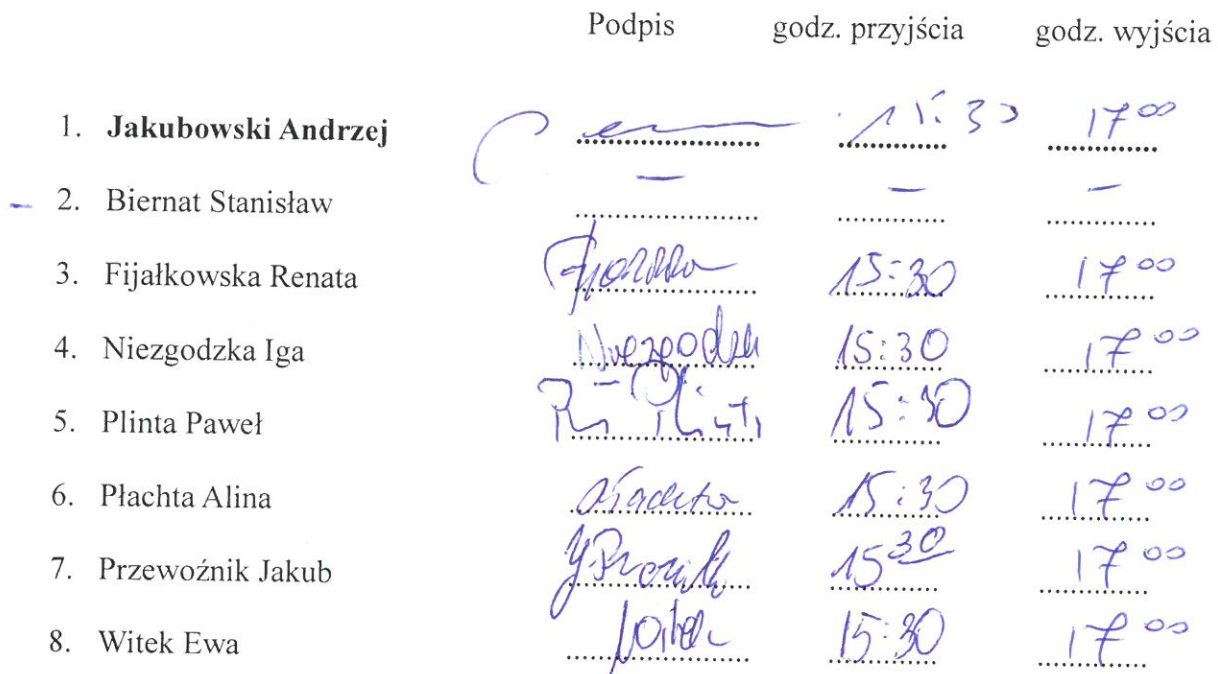 Podpis godz. przyjścia godz. wyjścia
1. Jakubowski Andrzej 15:30 17 00
- 2. Biernat Stanisław - - -
3. Fijałkowska Renata 15:30 17 00
4. Niezgodzka Iga 15:30 17 00
5. Plinta Paweł 15:30 17 00
6. Płachta Alina 15:30 17 00
7. Przewoźnik Jakub 15 30 17 00
8. Witek Ewa Witek 15:30 17 00